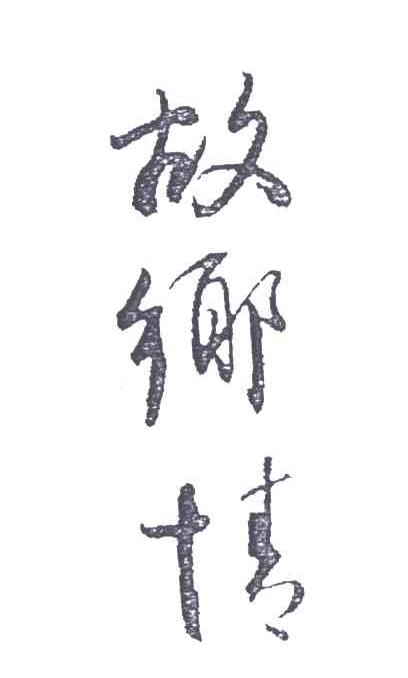 故鄉情